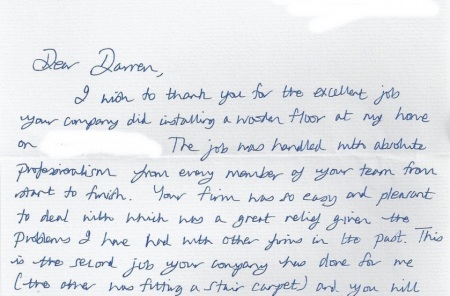 Dear Darren,
I wish to thank you for the excellent job
your company did installing a wooden floor at my home
on
The job was handled with absolute
professionalism from every member of your team from
start to finish. Your firm was so easy and pleasant
to deal with which was a great relief given the
problems I have had with other firms in the past. This
is the second job your company has done for me
(the other was fitting a stair carpet) and you will